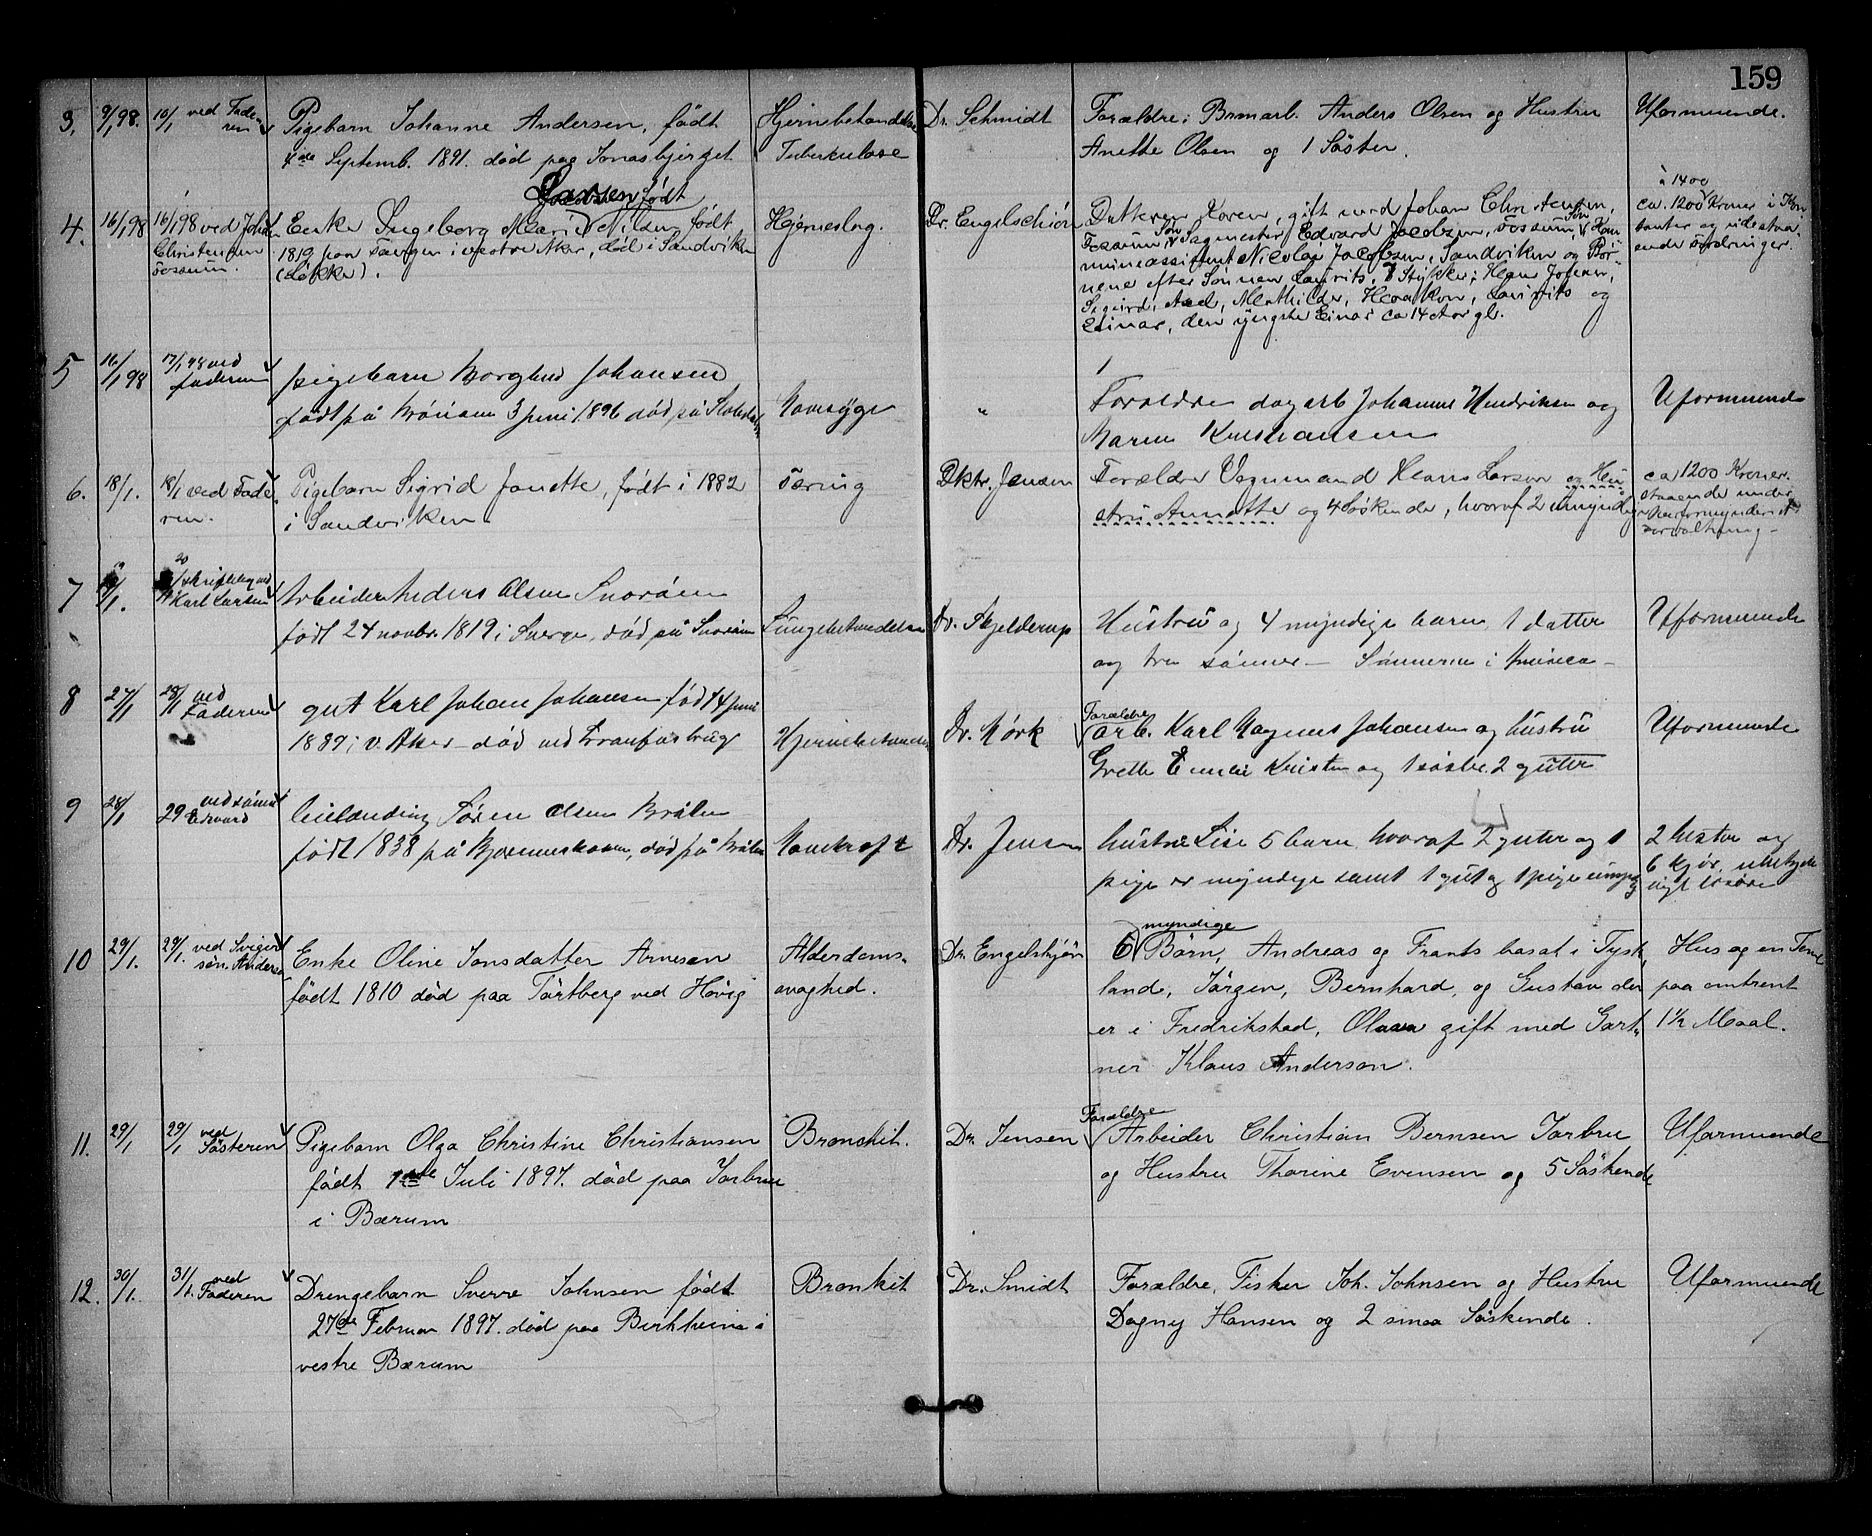 159
3. 9/1 98. 10/1 ved Fade- Pigebarn Johanne Andersen, født Hjernebetændelse Dr. Schmidt Forældre: Brmarb. Anders Olsen og Hustru Uformuende.
ren 4de Septemb. 1891. død paa Jonasbjerget Tuberkulose Anette Olsen og 1 Søster.
født
4. 16/1 98 16/1 98 ved Johan Enke Ingeborg Marie Nilsen, født Hjerneslag. Dr. Engelschiøn Datteren Karen, gift med Johan Christensen, ca. 1200 Kroner i Kon-
Christensen 1819 paa i vestre Aker, død i Sandviken Fossum, Søn Sagmester Edvard Jacobsen, Fossum, Søn Kom- tanter og udestaa-
Fossum. (Løkke). muneassistent Nicolay Jacobsen, Sandviken og Bør- ende Fordringer.
nene efter Sønnen Laurits, 7 Stykker: Hans Johan,
Sigurd, Axel, Mathilde, Haakon, Laurits og
Einar, den yngste Einar ca 14 Aar gl.
5 16/1 98 17/1 98 ved pigebarn Borghild Johansen
faderen født på 3 juni 1896 død på Navesyge " Forældre dagarb Johannes Hendriksen og Uformuende
Maren Kristiansen
6. 18/1. 18/1 ved Fade- Pigebarn Sigrid Janette, født i 1882 Tæring Dktr. Jensen Forældre Vognmand Hans Larsen og Hu- ca 1200 Kroner
ren. i Sandviken. stru Annette og 4 Søskende, hvoraf 2 umyndige staaende under
overformynderiets
Forvaltning -
7 20/1 skriftlig ved Arbeider Anders Olsen Snarøen
Karl Larsen født 24 novbr. 1819 i Sverge, død på Snarøen Lungebetændelse Dr. Skjelderup Hustru og 4 myndige barn, 1 datter Uformuende
og tre sønner - Sønnerne i Amerca -
8 27/1 28/1 ved gut Karl Johan Johansen født 4 juni
Faderen 1889 i v. Aker - død ved Granfosbrug Hjernebetændelse Dr. Mørk Forældre arb. Karl Magnus Johansen og hustru Uformuende
Grette Emilie Kristin og 1 søster 2 guter
9 28/1 29 ved sønnen leilænding Søren Olsen Bråten
Edvard født 1838 på Bjørneskoven, død på Bråten Mavekræft Dr. Jensen hustru Lise 5 barn, hvoraf 2 guter og 1 2 hester og
pige er myndige samt 1 gut og 1 pige umyndig 6 kjør, ubetyde-
ligt løsøre
myndige
10 29/1. 29/1. ved Sviger- Enke Oline Jonsdatter Arnesen Alderdoms- Dr. Engelskjøn 6 Børn, Andreas og Frants bosat i Tysk- Hus og en Tomt
søn. Anderson født 1810 død paa Tørtberg ved Høvig svaghed. land, Jørgen, Bernhard, og Gustav der paa omtrent
er i Fredrikstad, Olava gift med Gart- 1 1/2 Maal.
ner Klaus Anderson.
Forældre
11. 29/1 29/1 ved Pigebarn Olga Christine Christiansen Bronchit. Dr. Jensen Arbeider Christian Bernsen Jarbru Uformuende
Søsteren født 1ste Juli 1897. død paa Jarbru og Hustru Thorine Evensen og 5 Søskende
i Bærum
12. 30/1. 31/1. ved Drengebarn Sverre Johnsen født Bronkit Dr. Smidt Forældre, Fisker Joh. Johnsen og Hustru Uformuende
Faderen 27de Februar 1897. død paa Birkheim i Dagny Hansen og 2 smaa Søskende.
vestre Bærum